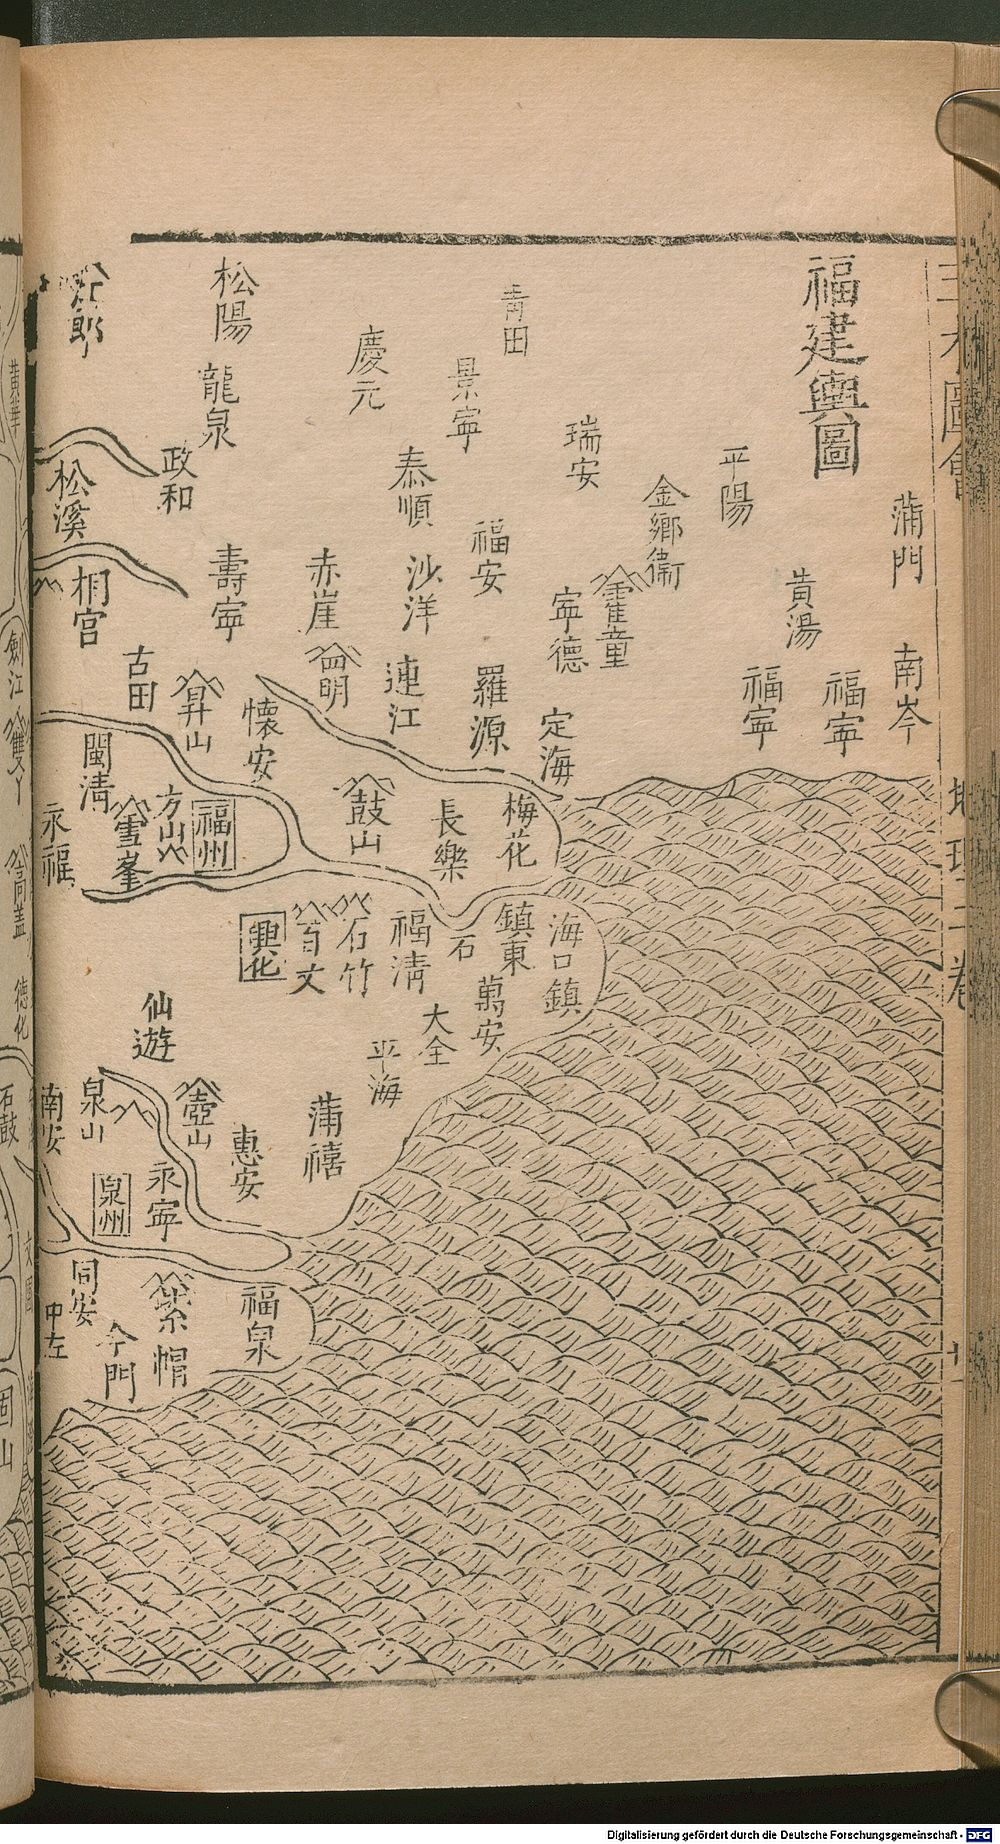 福建輿圖
蒲門
南岑
黃湯
福寧
平陽
福寧
金鄉衞
霍童
瑞安
寧德
定海
青田
景寧
福安
羅源
梅花
鎮東
海口鎮
泰順
沙洋
連江
長樂
石
萬安
慶元
赤崖
四明
鼓山
福清
大全
平海
石竹
百丈
蒲禧
松陽
龍泉
壽寧
懷安
興化
政和
昇山
福州
方山
古田
雪峯
仙遊
壺山
惠安
永寧
福泉
紫帽
松溪
桐宮
閩清
永福
泉山
南安
泉州
同安
今門
中左
黃華
劍江
雙
高蓋
德化
石鼓
Digitalisierung gefördert durch die Deutsche Forschungsgemeinschaft - DFG